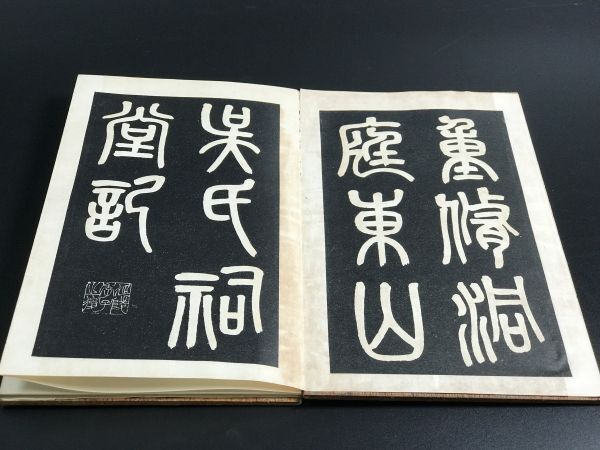 重脩洞
庭東山
吳氏祠
堂記